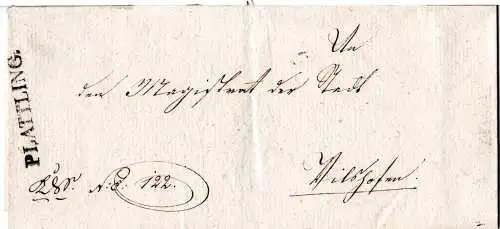 PLATTLING.
An
den Magistrat der Stadt
Vilshofen.
N: E: 122.